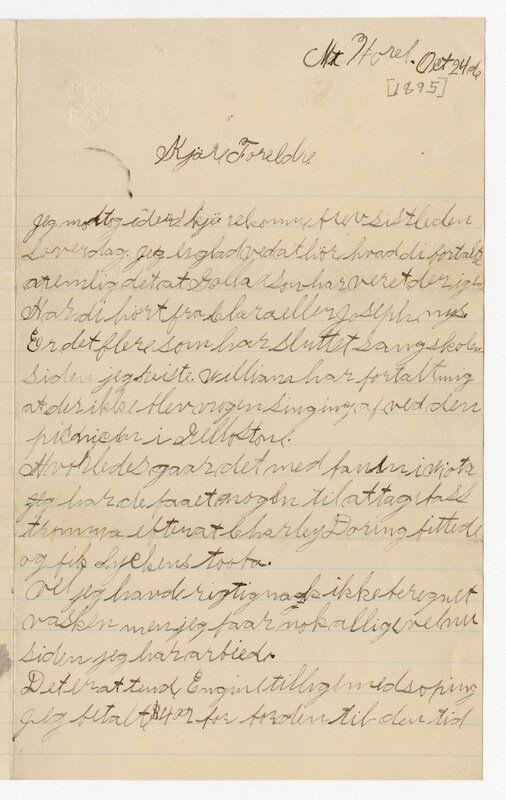 Mt Horel. Oct 24de
[1895]
Kjäre Foreldre
jeg modtog eders kjärekomne brev sistleden
Loverdag. jeg er glad ved at hör hvad di fortalte
nemlig det at som har veret der igjen
Har di hört fra Clara eller Joseph nys
Er det flere som har sluttet sangskolen
siden jeg reiste. William har fortalt mig
at der ikke blev nogen singing af ved den
picnicen i
Hvorledes gaar det med i
har de faaet nogen til at tage bass
tromma efter at Charley Doring
og fik Lyckens tooba.
Vel jeg havde rigtignok ikke beregnet
vasken men jeg faar nok alligevel nu
siden jeg har arbied.
Det er at tende Engine tilligemed soping
jeg betalte $4.00 for borden til den tid